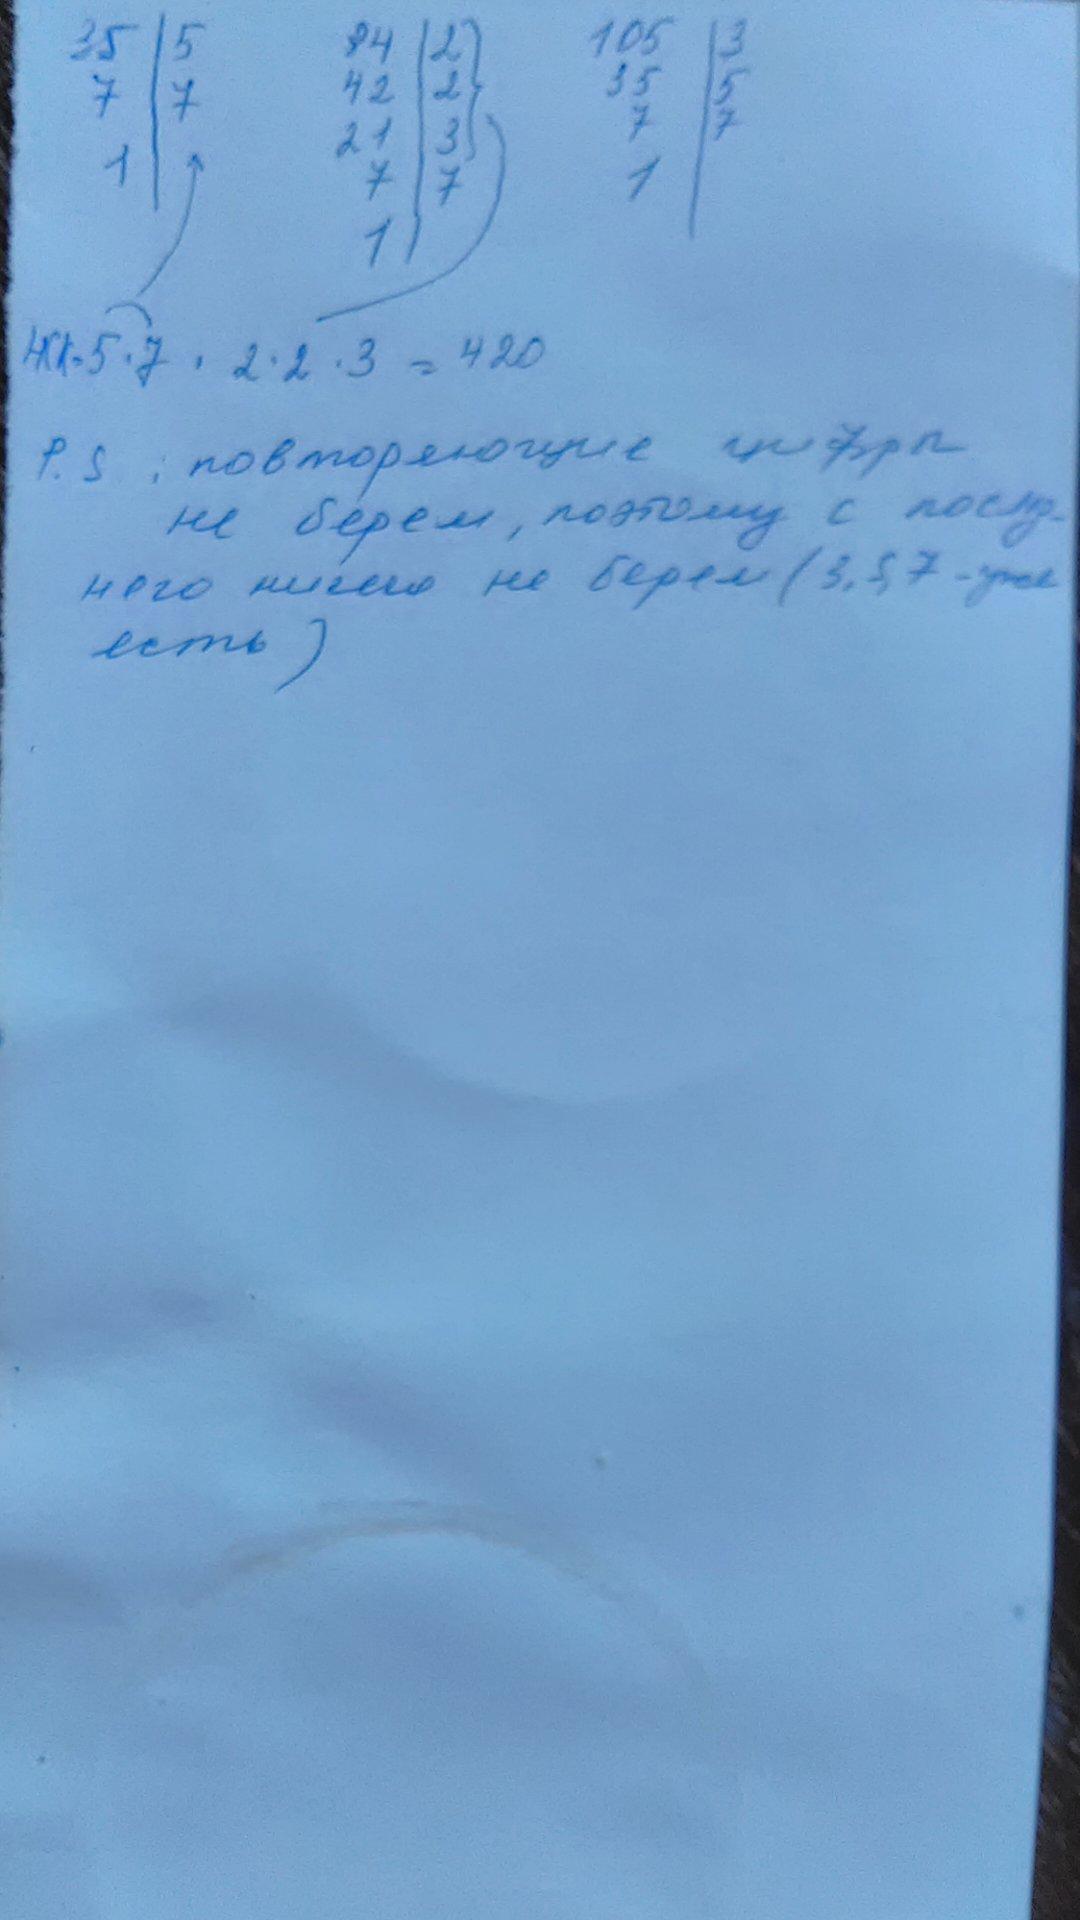 35 | 5 84 | 2 105 | 3
7 | 7 42 | 2 35 | 5
21 | 3 7 | 7
1 7 | 7 1
1
НОК = 5 · 7 · 2 · 2 · 3 = 420
P.S : повторяющие цифры
не берем, поэтому с послед-
него числа не берем (3,5,7 - уже
есть)